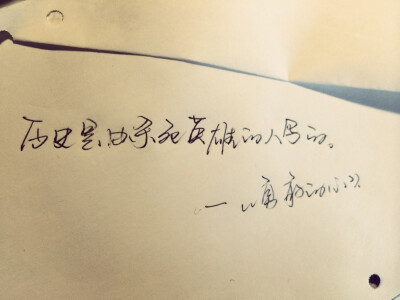 历史是由杀死英雄的人写的。
——《勇敢的心》